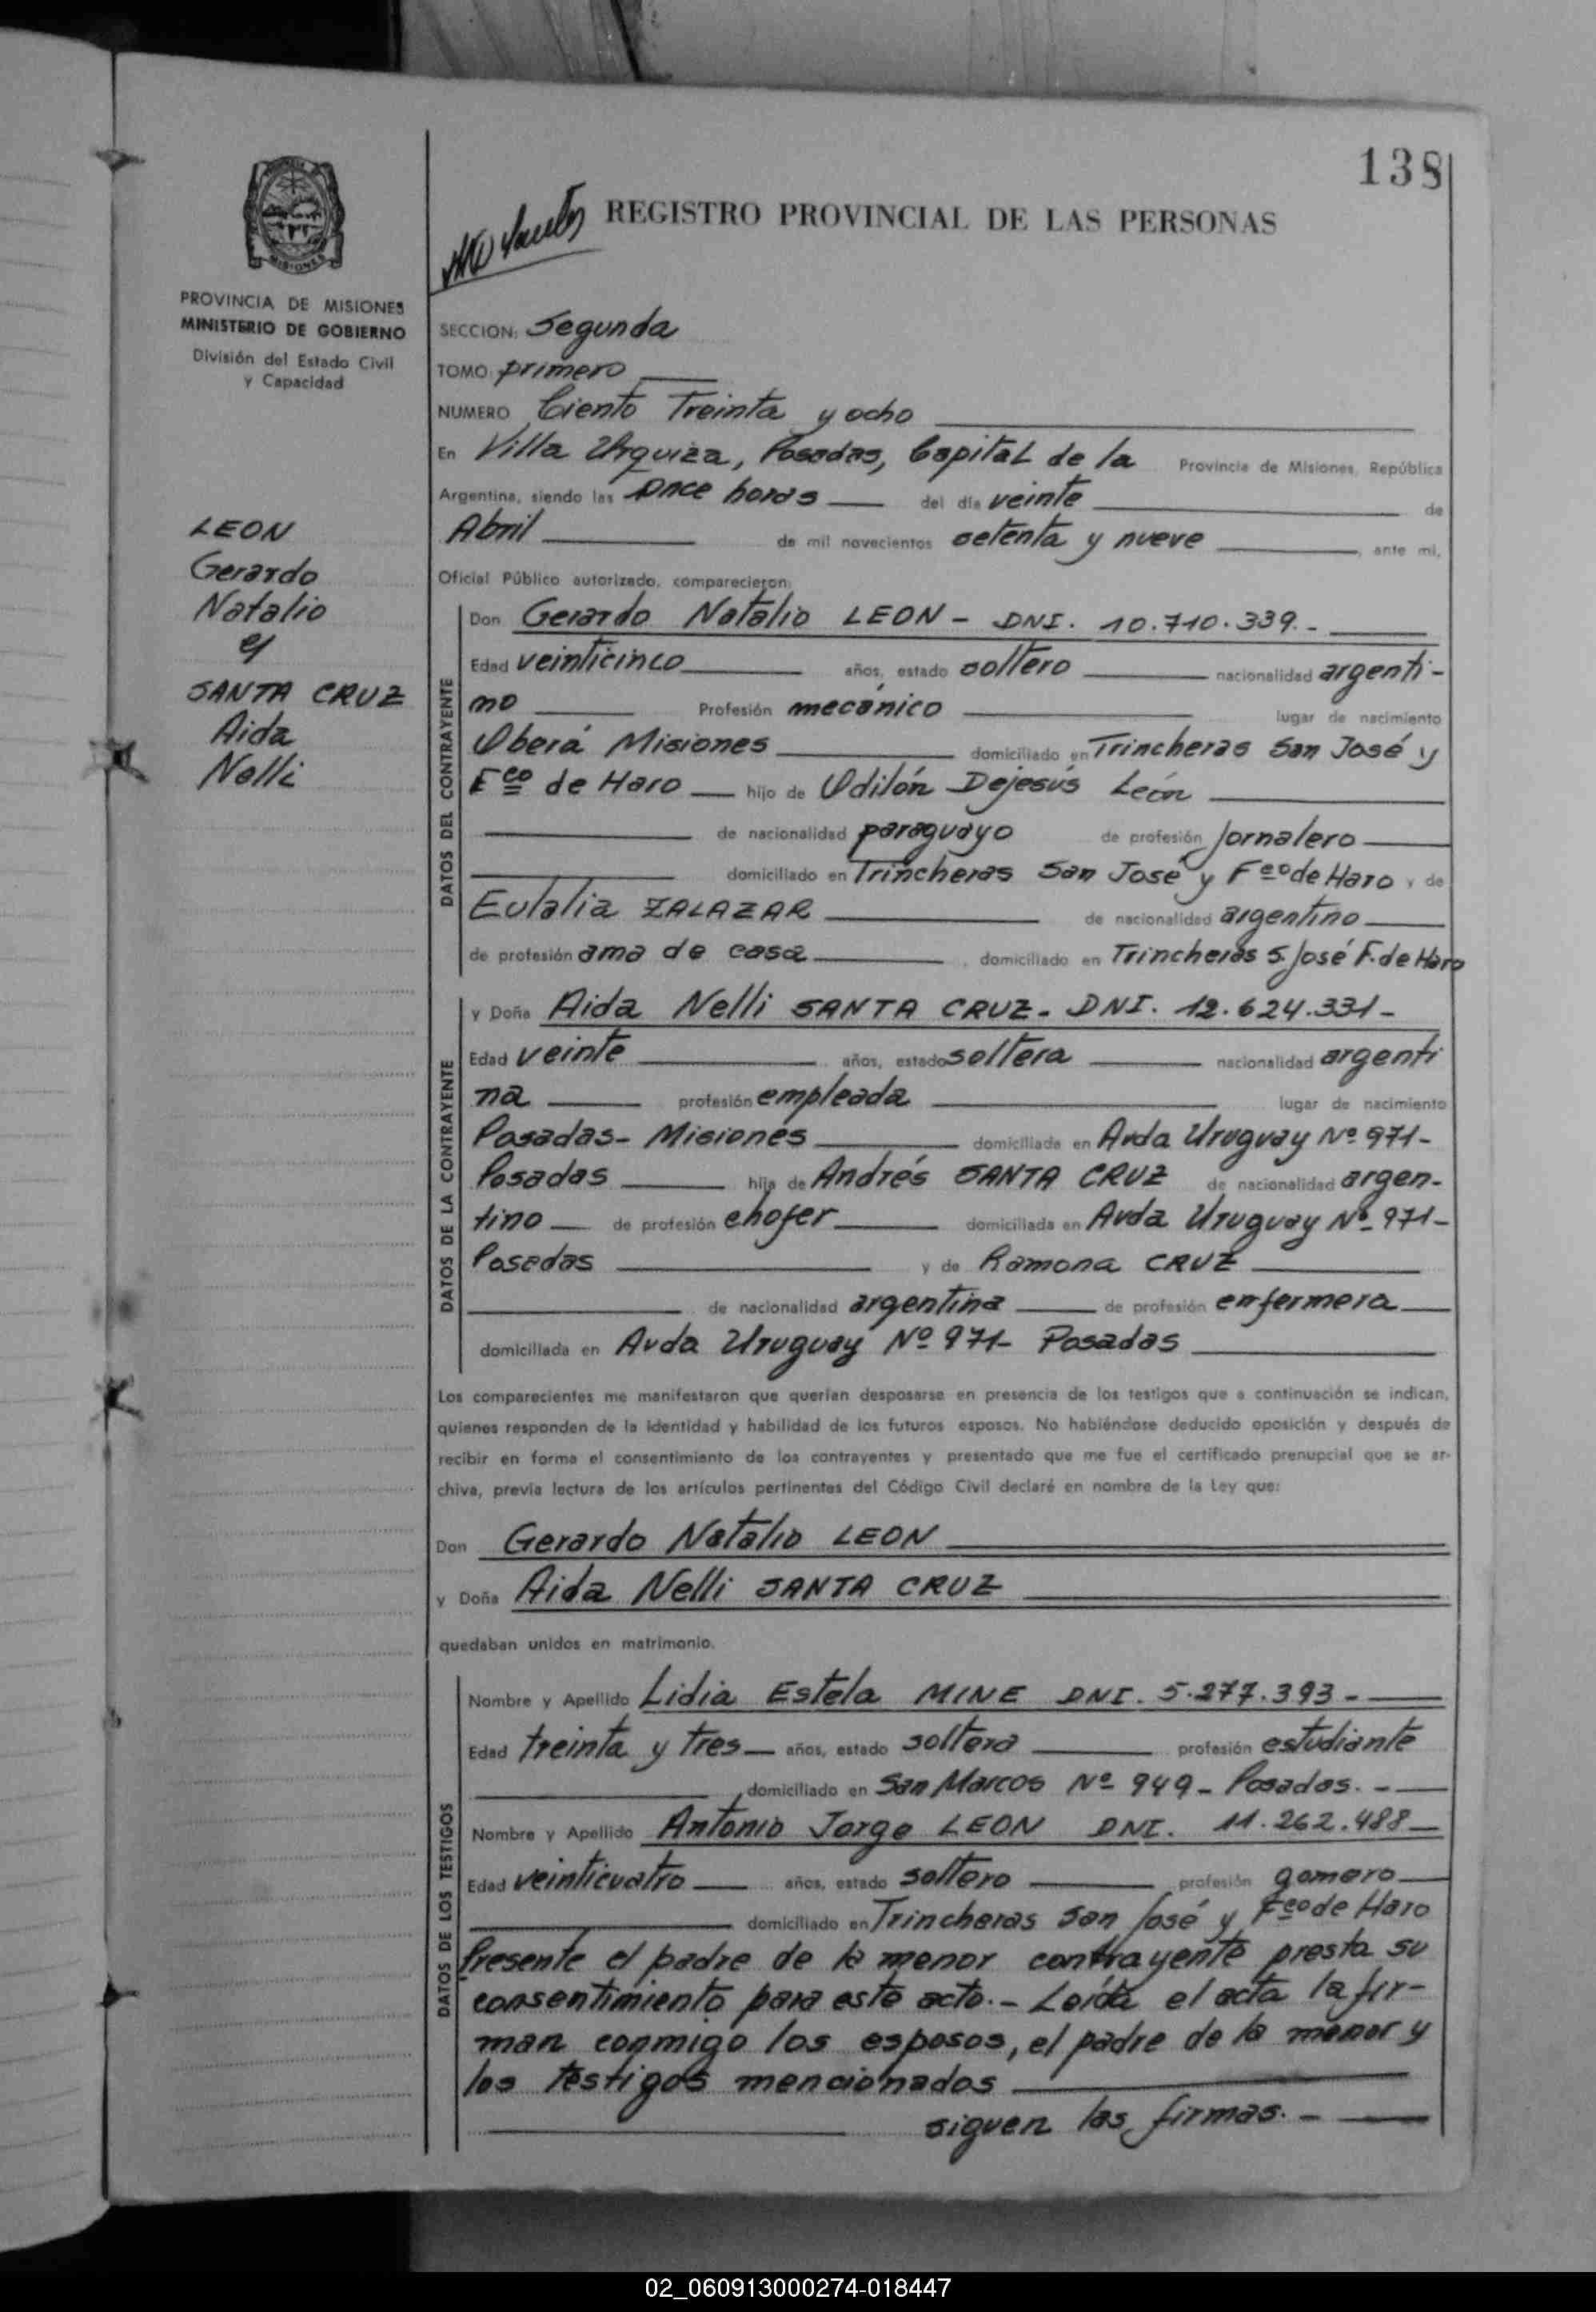 138
REGISTRO PROVINCIAL DE LAS PERSONAS
MISIONES
PROVINCIA DE MISIONES
MINISTERIO DE GOBIERNO
División del Estado Civil
y Capacidad
LEON
Gerardo
Natalio
y
SANTA CRUZ
Aida
Nelli
SECCION: Segunda
TOMO: primero
NUMERO Ciento Treinta y ocho
En Villa Urquiza, Posadas, Capital de la Provincia de Misiones, República
Argentina, siendo las once horas del día veinte de
Abril de mil novecientos setenta y nueve, ante mi,
Oficial Público autorizado, comparecieron:
DATOS DEL CONTRAYENTE
Don Gerardo Natalio LEON - DNI. 10.710.339.-
Edad veinticinco años, estado soltero nacionalidad argenti-
no Profesión mecánico lugar de nacimiento
Oberá Misiones domiciliado en Trincheras San José y
Fco de Haro hijo de Odilón Dejesús León
de nacionalidad paraguayo de profesión jornalero
domiciliado en Trincheras San José y Fco de Haro y de
Eulalia ZALAZAR de nacionalidad argentino
de profesión ama de casa, domiciliado en Trincheras S. José F. de Haro
DATOS DE LA CONTRAYENTE
y Doña Aida Nelli SANTA CRUZ - DNI. 12.624.331-
Edad veinte años, estado soltera nacionalidad argenti
na profesión empleada lugar de nacimiento
Posadas - Misiones domiciliada en Avda Uruguay Nº 971-
Posadas hija de Andrés SANTA CRUZ de nacionalidad argen-
tino de profesión chofer domiciliada en Avda Uruguay Nº 971-
Posadas y de Ramona CRUZ
de nacionalidad argentina de profesión enfermera
domiciliada en Avda Uruguay Nº 971- Posadas
Los comparecientes me manifestaron que querían desposarse en presencia de los testigos que a continuación se indican,
quienes responden de la identidad y habilidad de los futuros esposos. No habiéndose deducido oposición y después de
recibir en forma el consentimiento de los contrayentes y presentado que me fue el certificado prenupcial que se ar-
chiva, previa lectura de los artículos pertinentes del Código Civil declaré en nombre de la Ley que:
Don Gerardo Natalio LEON
y Doña Aida Nelli SANTA CRUZ
quedaban unidos en matrimonio.
DATOS DE LOS TESTIGOS
Nombre y Apellido Lidia Estela MINE DNI. 5.277.393-
Edad treinta y tres años, estado soltera profesión estudiante
domiciliado en San Marcos Nº 949- Posadas.-
Nombre y Apellido Antonio Jorge LEON DNI. 11.262.488
Edad veinticuatro años, estado soltero profesión gomero
domiciliado en Trincheras San José y Fco de Haro
Presente el padre de la menor contrayente presta su
consentimiento para este acto.- Leída el acta la fir-
man conmigo los esposos, el padre de la menor y
los testigos mencionados
siguen las firmas.-
02_060913000274-018447